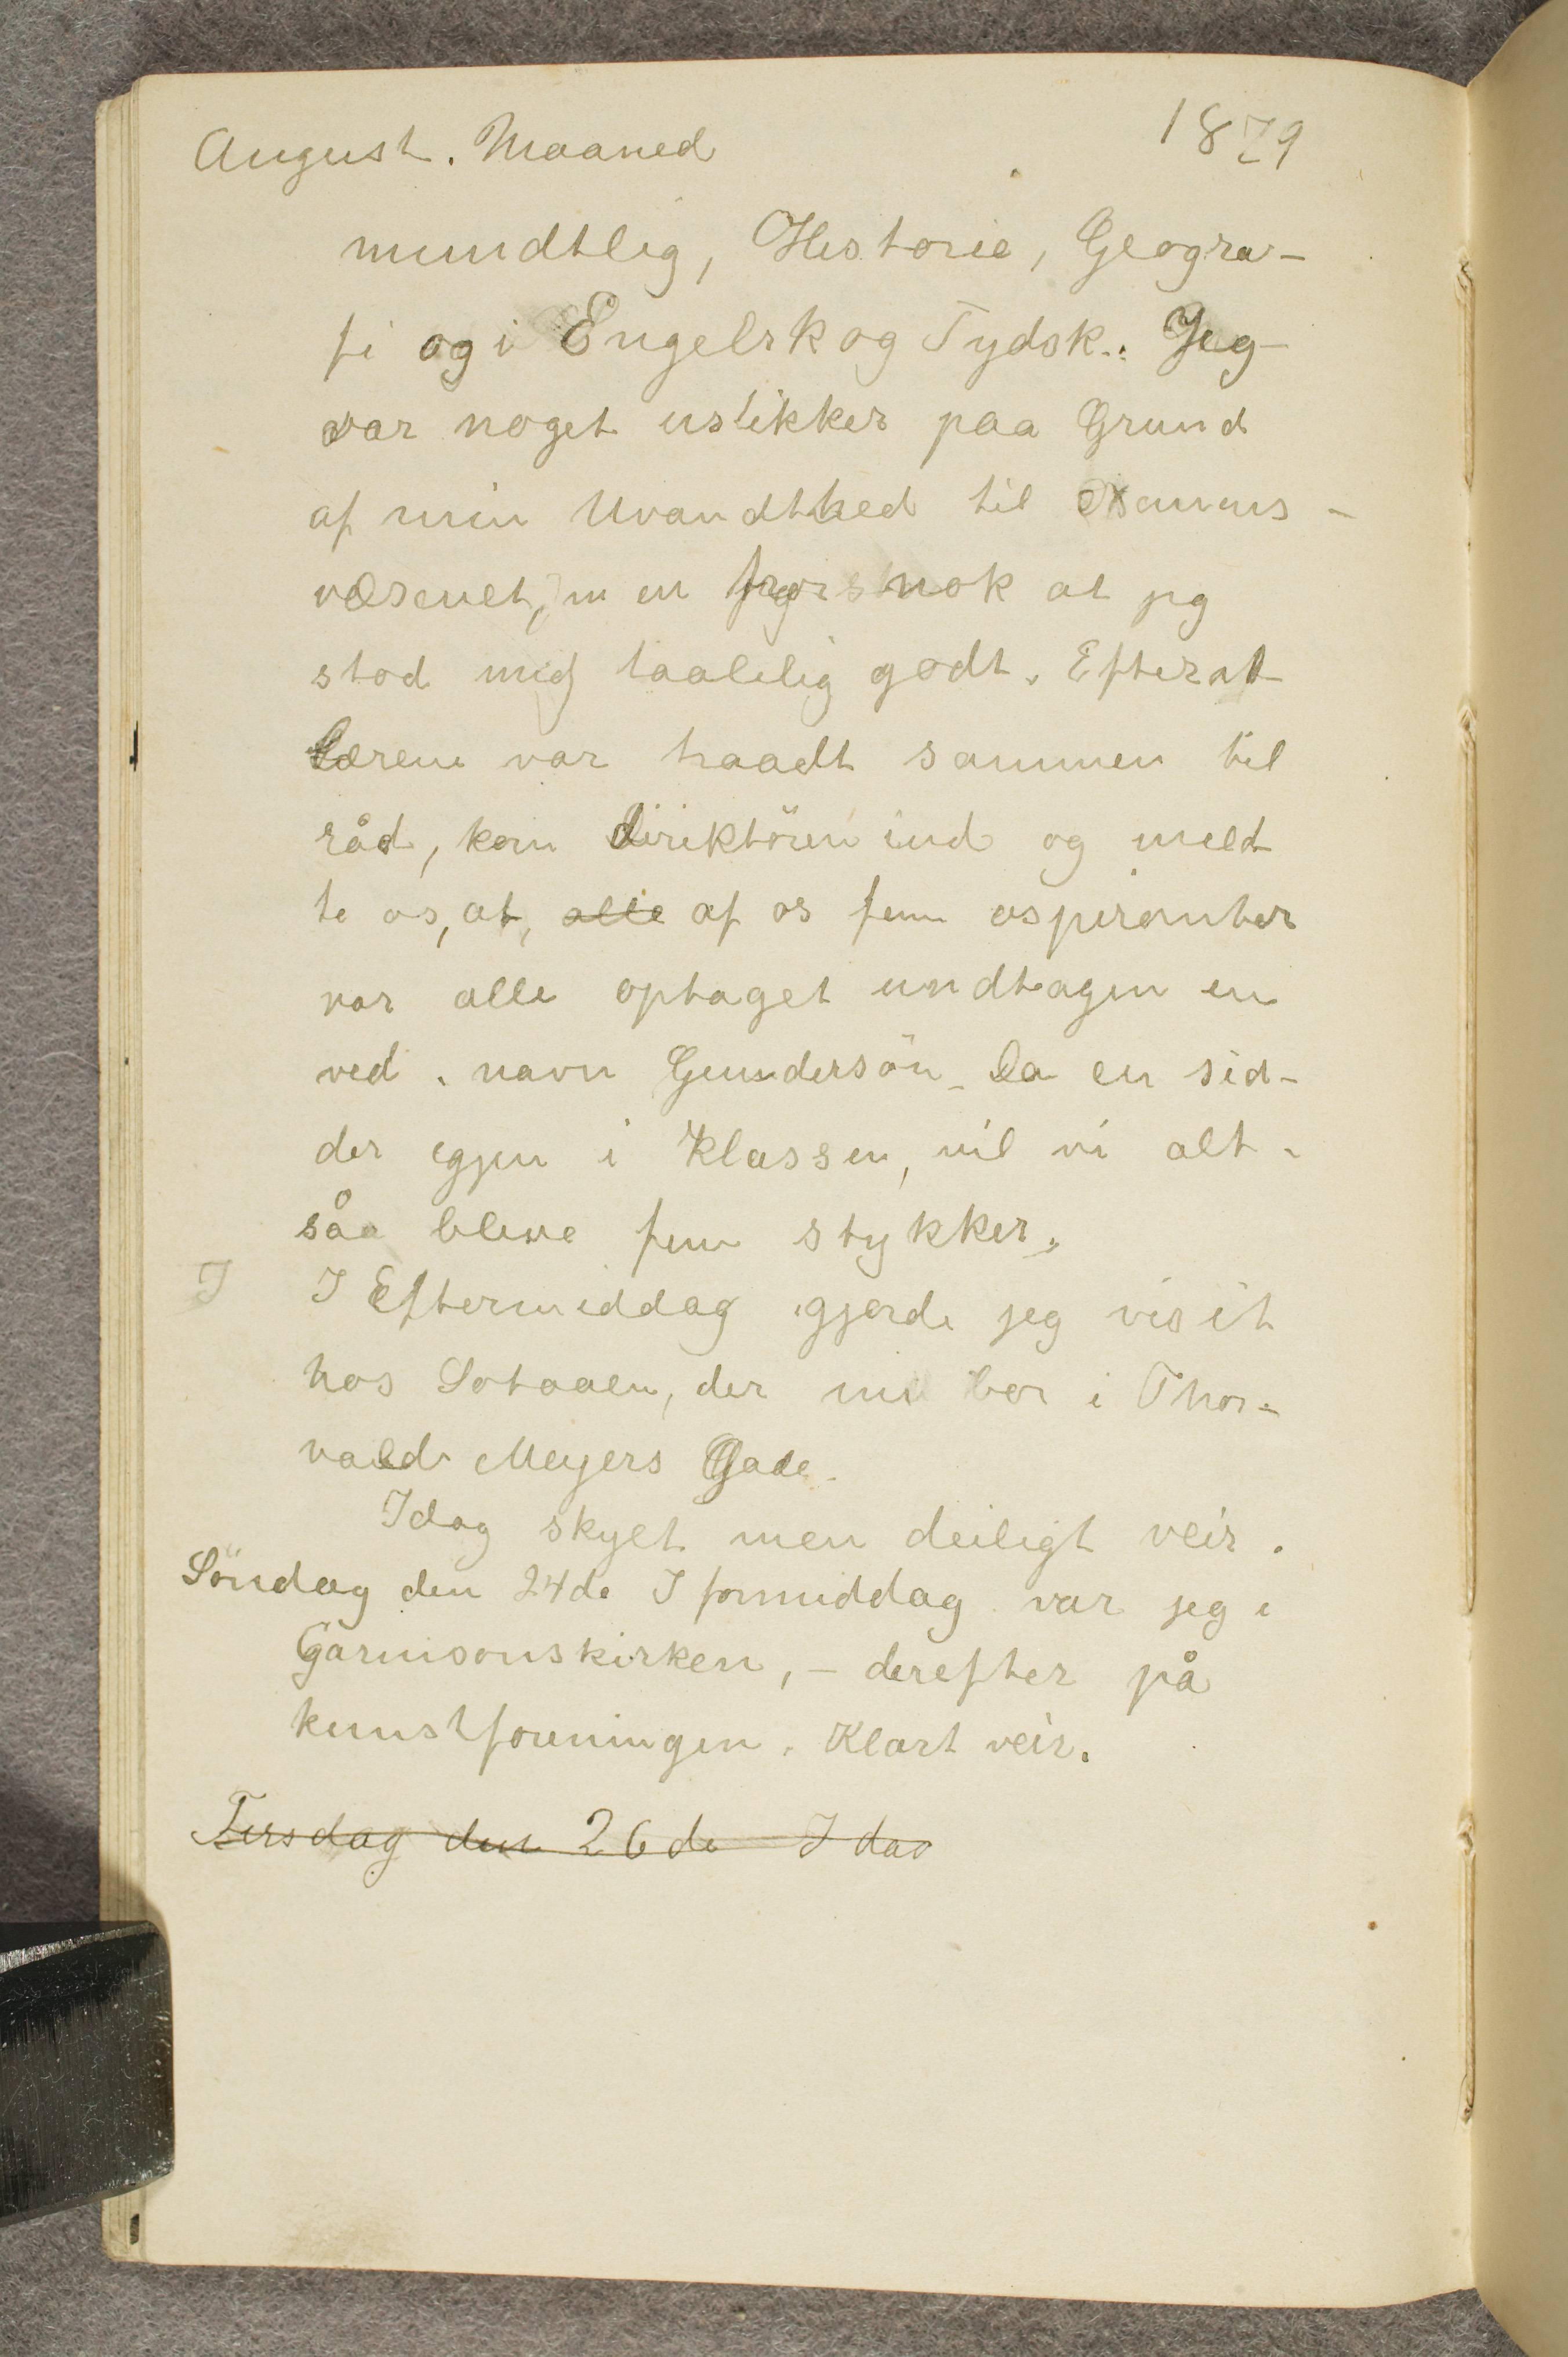 August. Maaned 1879
mundtlig, Historie, Geogra-
fi og i Engelsk og Tydsk. Jeg
var noget usikker paa Grund
af min Uvandthed til Examens-
væsenet, men nok at jeg
stod mig taalelig godt. Efter at
Lærene var traadt sammen til
råd, kom direktören ind og meld
te os, at, alle af os fem aspiranter
var alle optaget undtagen en
ved. navn Gundersön. Da en sid-
der egjen i Klassen, vil vi alt-
såa bleve fem stykker.
I I Eftermiddag gjorde jeg visit
hos Sotaaen, der nu bor i Thor-
vald Meyers Gade.
Idag skyet men deiligt veir.
Söndag den 24de I formiddag var jeg i
Garnisonskirken, - derefter på
kunstforeningen. Klart veir.
Tirsdag den 26de I dag